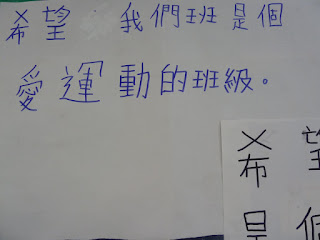 希望 我們班是個
愛運動的班級。
希望
是個